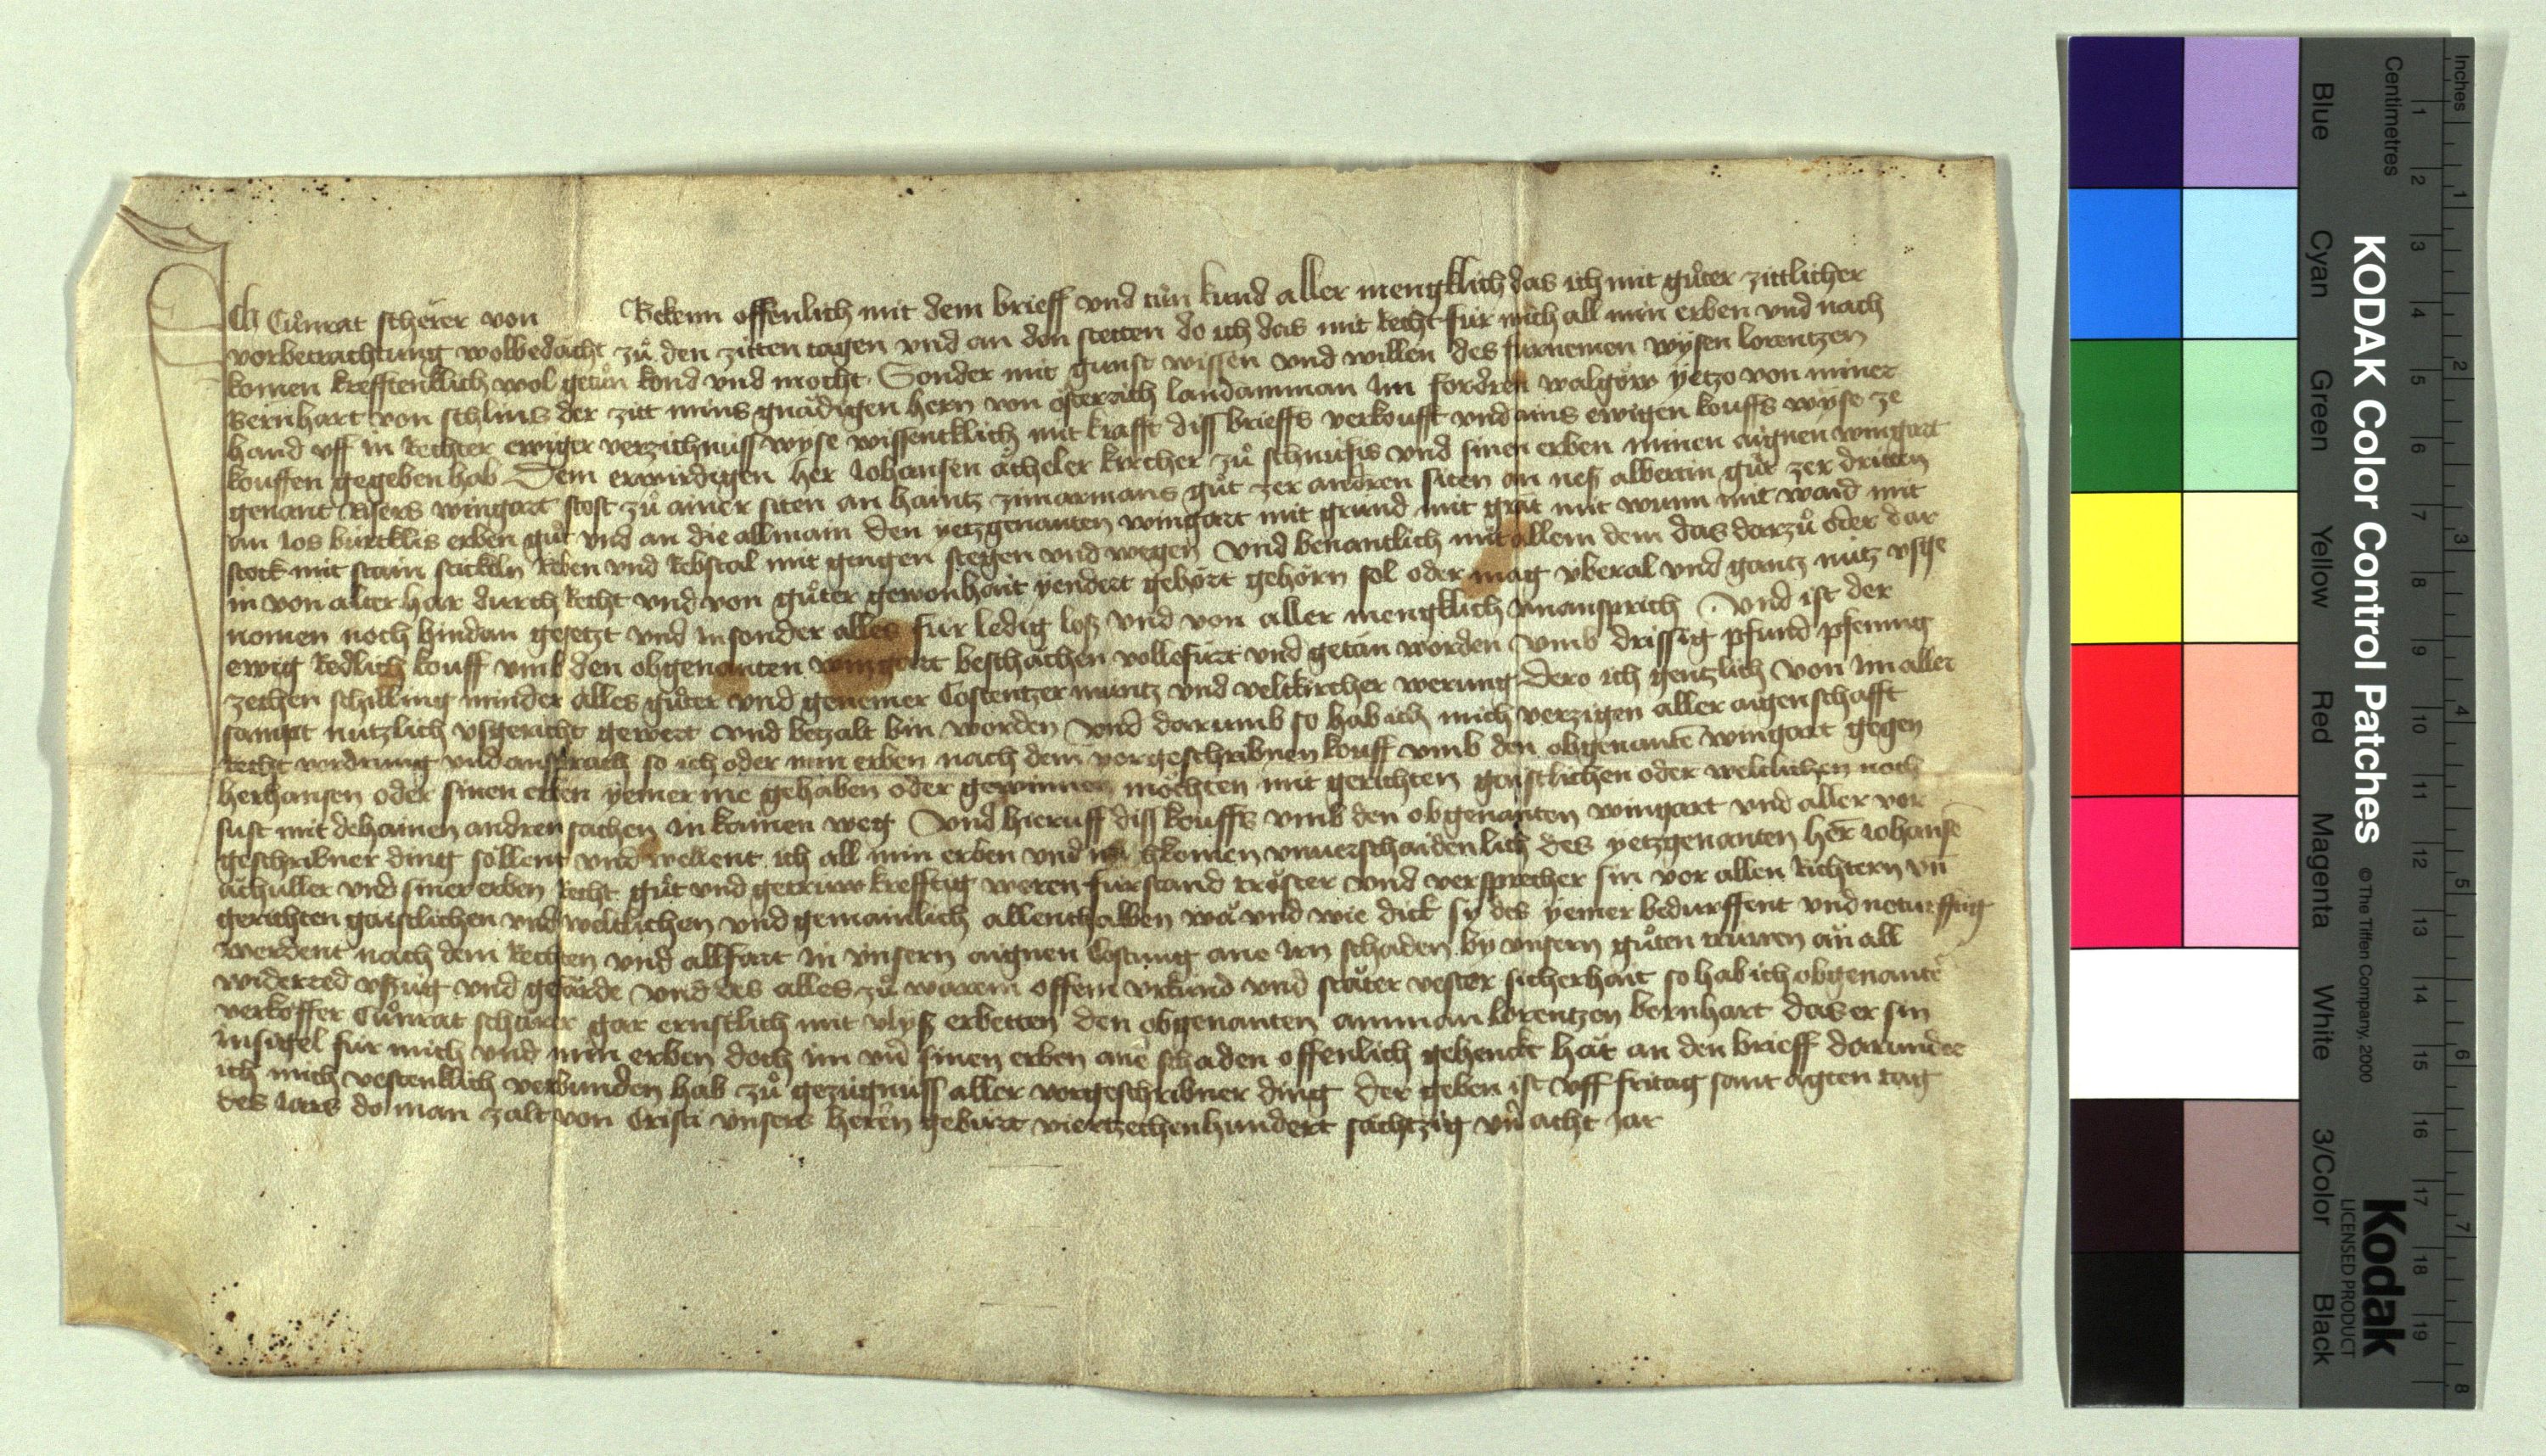 Ich Cůnrat scherer von Bekenn offenlich mit dem brieff vnd tůn kund aller mengklich das ich mit gůter zittlicher
vorbetrachtung wolbedacht zů den zitten tagen vnd an den stetten do ich das mit Recht für mich all min erben vnd nach
komen krefftenklich wol getůn kond vnd mocht Sonder mit gunst wissen vnd willen des fürnemen wysen lorentzen
Bernhart von schlins der zitt mins gnädigen hern von österrich landamman Im fordren walgöw yetzo von miner
hand vff in Rechter ewiger verzichnuss wyse wissentklich mit krafft diss brieffs verkoufft vnd ains ewigen kouffs wyse ze
kouffen gegeben hab Dem erwirdigen her Johansen ächeler kircher zů schnüfis vnd sinen erben minen aignen wingart
genant wingart stost zů ainer siten an haintz zimermans gůt zer andren siten an alberin gůt zer dritten
an Jos bürcklis erben gůt vnd an die allmain den yetzgenanten wingart mit grund mit grät mit wunn mit waid mit
stock mit stam stickeln Reben vnd Rebstal mit gengen stegen vnd wegen Vnd benantlich mit allem dem das darzů oder dar
in von alter har durch Recht vnd von gůter gewonhait yendert gehört gehörn sol oder mag vberal vnd gantz nütz vsge
nomen noch hindan gesetzt vnd in sonder alles für ledig loß vnd von aller mengklich vnansprich Vnd ist der
ewig Redlich kouff vmb den obgenanten wingart beschächen vollefürt vnd getän worden vmb drissig pfund pfening
zechen schilling minder alles gůter vnd genemer Costentzer müntz vnd veltkircher werung Dero ich gentzlich von Im aller
sampt nutzlich vsgericht gewert vnd betzalt bin worden vnd darumb so hab ich mich verzigen aller aigenschafft
Recht vordrung vnd ansprach so ich oder min erben nach dem vorgeschribnen kouff vmb den obgenantē wingart gegen
herhansen oder sinen erben yemer me gehaben oder gewinnen möchten mit gerichten gaistlichen oder weltlichen noch
sust mit dehainen andren sachen in kainen weg Vnd hieruff diss kouffs vmb den obgenanten wingart vnd aller vor
geschribner ding söllent vnd wellent ich all min erben vnd nachkomen vnuerschaidenlich des yetzgenanten her Johanse
ächuller vnd siner erben Recht gůt vnd getrüw krefftig weren fürstand tröster vnd versprecher sin vor allen Richtern vn̄
gerichten gaistlichen vnd weltlichen vnd gemainlich allenthalben wä vnd wie dick sy des yemer bedurffent vnd noturfftig
werdent nach dem Rechten vnd allfart in vnsern aignen Costung ane Irn schaden by vnsern gůten trüwen an all
widerred vßzüg vnd gefärde vnd des alles zů warem offem vrkünd vnd stäter vester sicherhait so hab ich obgenantē
verköffer Cůnrat schärer gar ernstlich mit vlyß erbetten den obgenanten amman lorentzen bernhart das er sin
insigel für mich vnd min erben doch im vn̄ sinen erben ane schaden offenlich gehenckt hät an den brieff darunder
ich mich vestenklich verbunden hab zů gezügnuss aller vorgeschribner ding der geben ist vff fritag sant agten tag
des Jars do man zalt von Cristi vnsers heren gebürt viertzechenhundert sächtzig vn̄ acht Jar
KODAK Color Control Patches © The Tiffen Company, 2000
Kodak
LICENSED PRODUCT
Blue Cyan Green Yellow Red Magenta White 3/Color Black
Centimetres 1 2 3 4 5 6 7 8 9 10 11 12 13 14 15 16 17 18 19
Inches 1 2 3 4 5 6 7 8